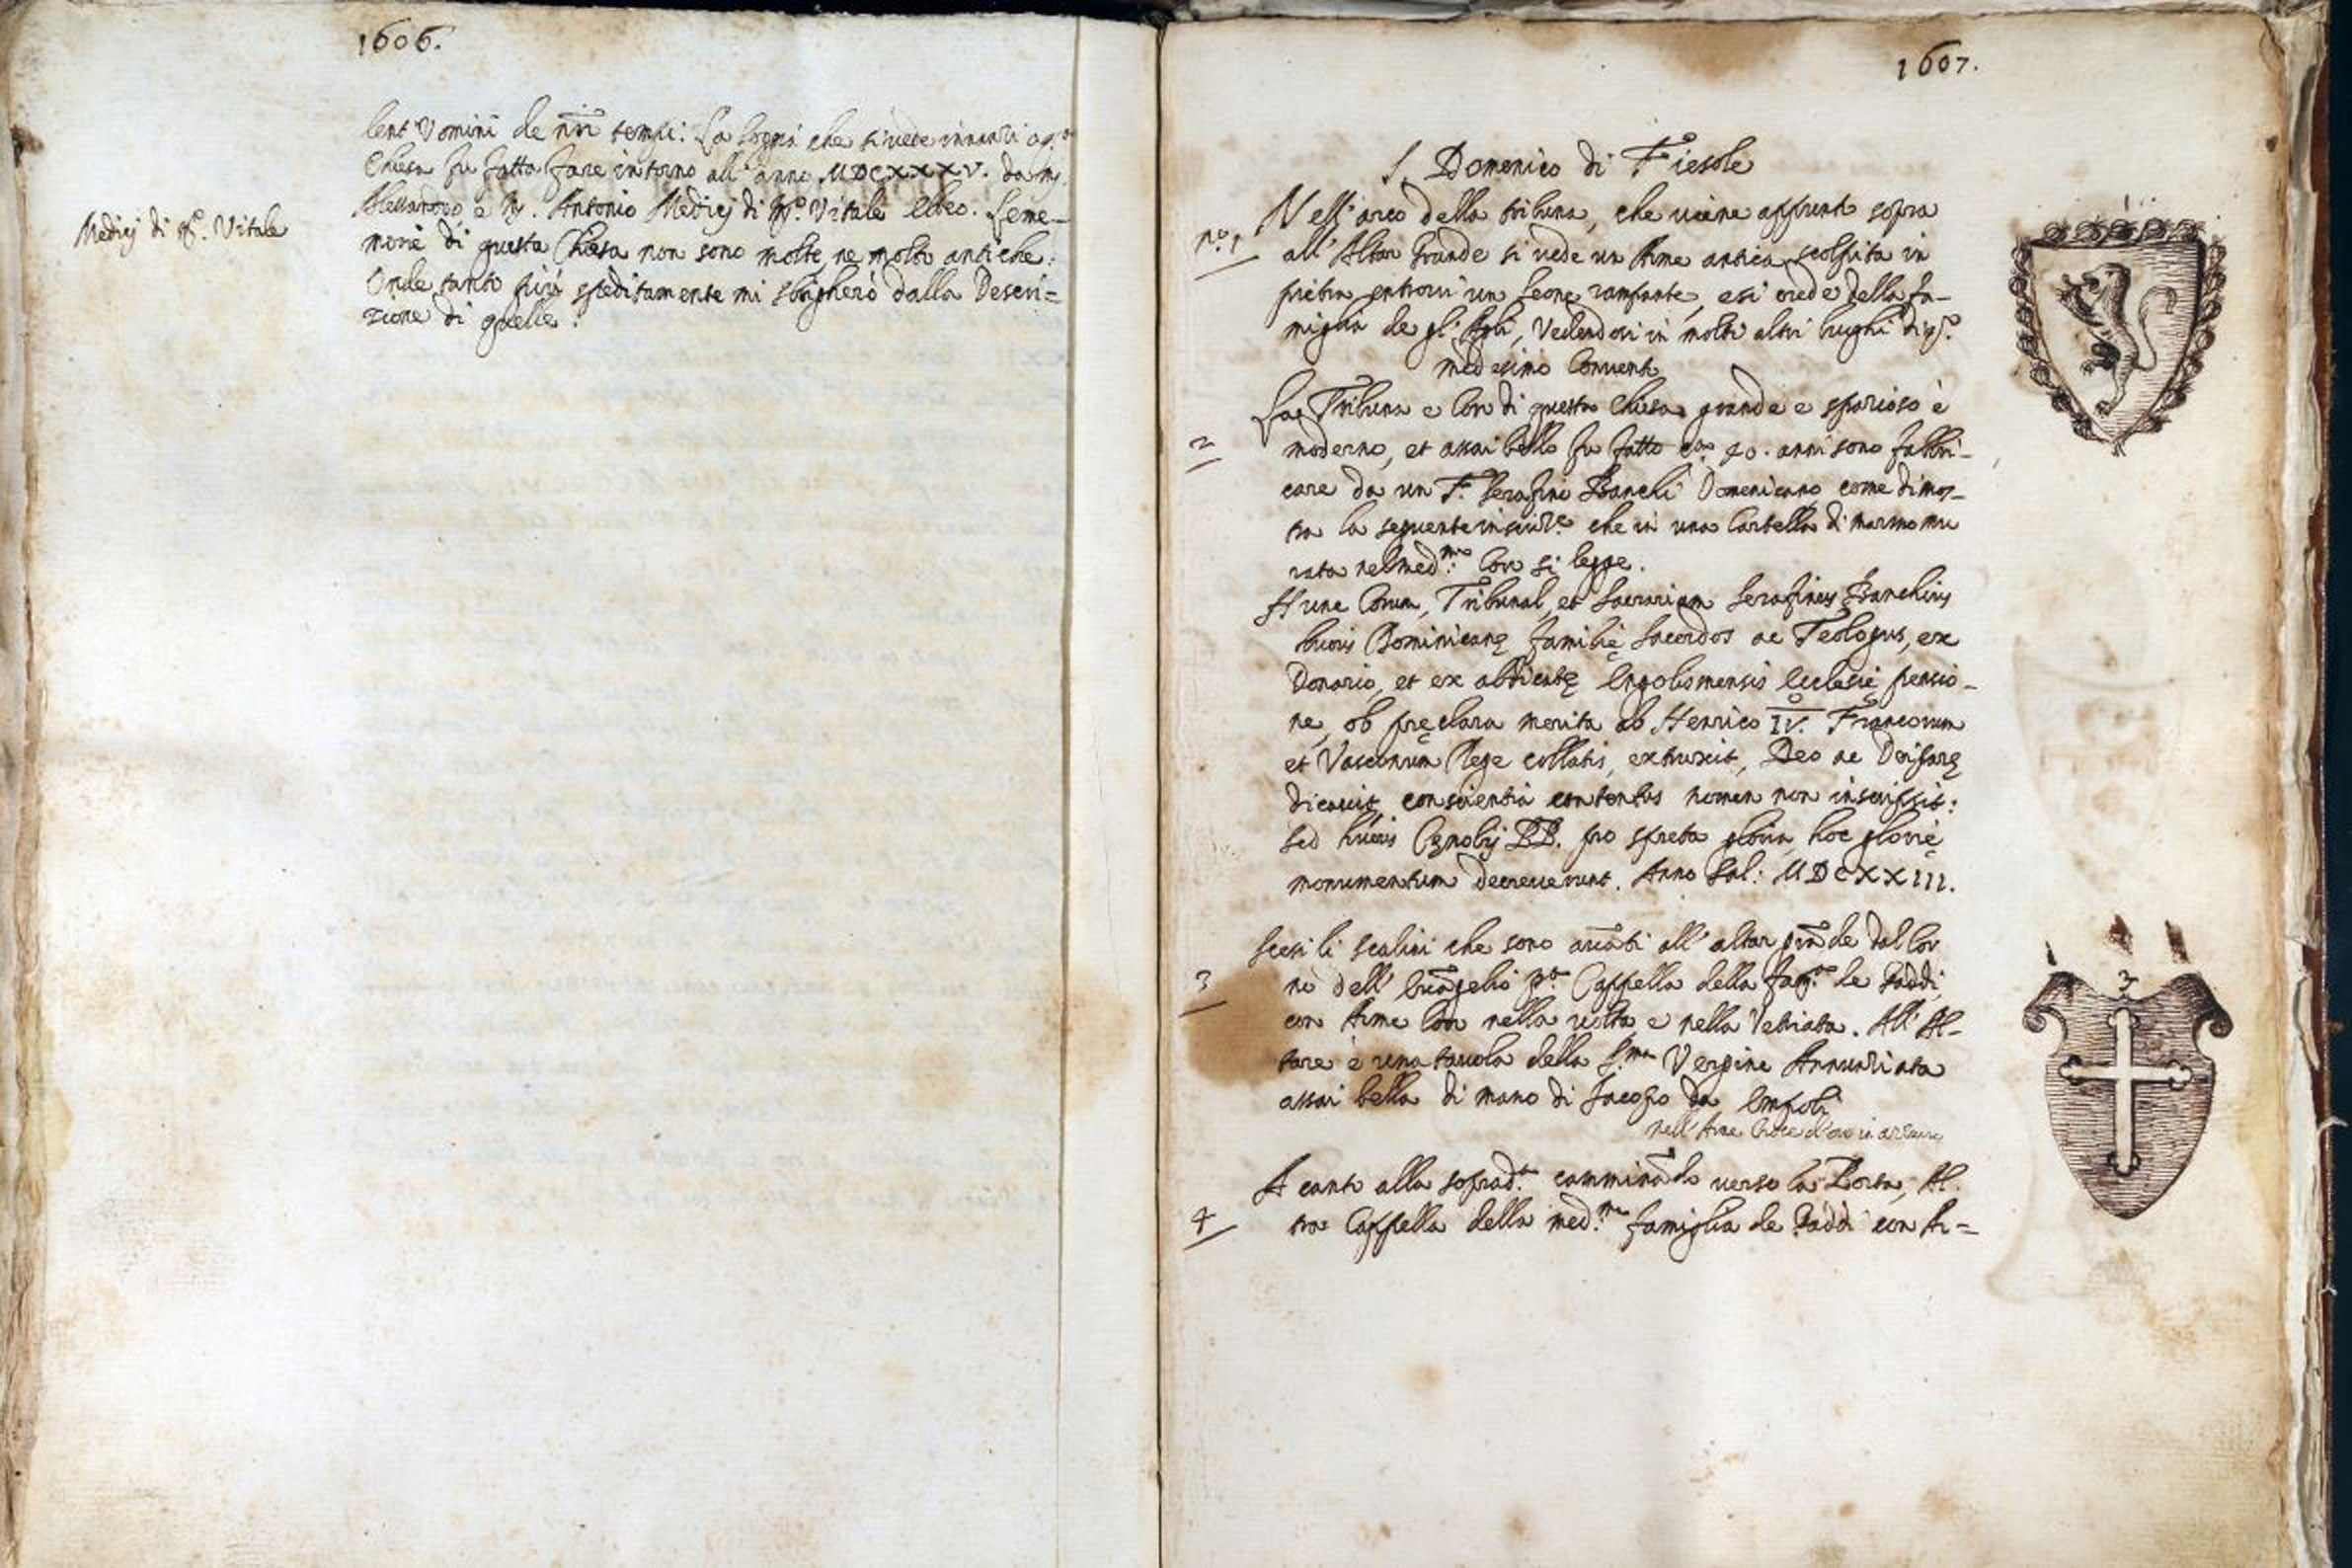 1606.
lenti Vomini de nri tempi: La loggia che si vede innanzi
Chiesa fu fatta fare intorno all'anno MDCXXXV. da
Alessandro, e Antonio Medicj di Vitale Ebreo. Le me-
Medicj di Vitale
morie di questa Chiesa non sono molte, ne molto antiche:
Onde tanto più speditamente mi sbrigherò dalla Descri=
zione di quelle.
1607.
S. Domenico di Fiesole
n.º 1
Nell'arco della tribuna, che viene appunto sopra
all'Altar Grande si vede un Arme antica scolpita in
pietra entrovi un Leone rampante, e si crede della fa-
miglia de gl'Agli, Vedendosi in molti altri luoghi di
medesimo Convento
2
La Tribuna e Coro di questa Chiesa grande e spazioso è
moderno, et assai bello fu fatto 20. anni sono fabbri-
care da un F. Serafino Banchi Domenicano come dimos-
tra la seguente inscriz.e che in una Cartella di marmo mu
rata nel med.mo Coro si legge.
Hunc Corum, Tribunal, et Sacrarium Serafinus Banchius
huius Dominicanę familię Sacerdos ac Teologus, ex
Donario, et ex Engolismensis Ecclesię pensio-
ne, ob pręclara merita ab Henrico IV. Francorum
et Vasconum Rege collatis, extruxit, Deo ac Deiparę
dicavit, conscientia contentus nomen non inscripsit:
Sed huius Cęnobij PP. pro spreta gloria hoc glorię
monumentum decreverunt. Anno Sal: MDCXXIII.
3
Scesi li scalini che sono avãti all'altar grãde dal Cor
no dell'Evãgelio p.a Cappella della fam.a de Gaddi,
con Arme loro nella volta e nella Vetriata. All'Al-
tare è una tavola della S.ma Vergine Annunziata
assai bella di mano di Jacopo da Empoli
nell'Arme Croce d'oro in azzurro
3
4
A canto alla soprad.a camminãdo verso la Porta, Al.
tra Cappella della med.ma famiglia de Gaddi con Ar=